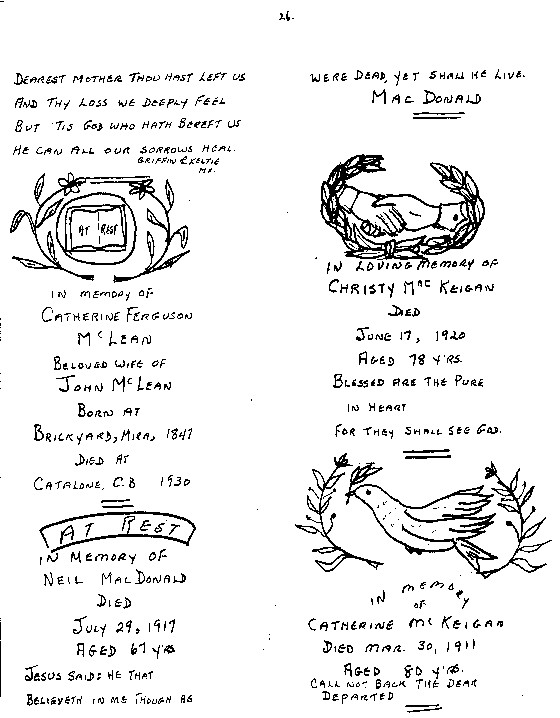 26.
DEAREST MOTHER THOU HAST LEFT US
AND THY LOSS WE DEEPLY FEEL
BUT 'TIS GOD WHO HATH BEREFT US
HE CAN ALL OUR SORROWS HEAL.
GRIFFIN &
AT REST
IN MEMORY OF
CATHERINE FERGUSON
McLEAN
BELOVED WIFE OF
JOHN McLEAN
BORN AT
BRICKYARD, MIRA, 1847
DIED AT
CATALONE, C.B 1930
AT REST
IN MEMORY OF
NEIL MACDONALD
DIED
JULY 29, 1917
AGED 67 YRS
JESUS SAID: HE THAT
BELIEVETH IN ME THOUGH HE
WERE DEAD, YET SHALL HE LIVE.
MACDONALD
IN LOVING MEMORY OF
CHRISTY MAC KEIGAN
DIED
JUNE 17, 1920
AGED 78 Y'RS.
BLESSED ARE THE PURE
IN HEART
FOR THEY SHALL SEE GOD.
IN MEMORY
OF
CATHERINE Mc KEIGAN
DIED MAR. 30, 1911
AGED 80 Y'RS.
CALL NOT BACK THE DEAR
DEPARTED